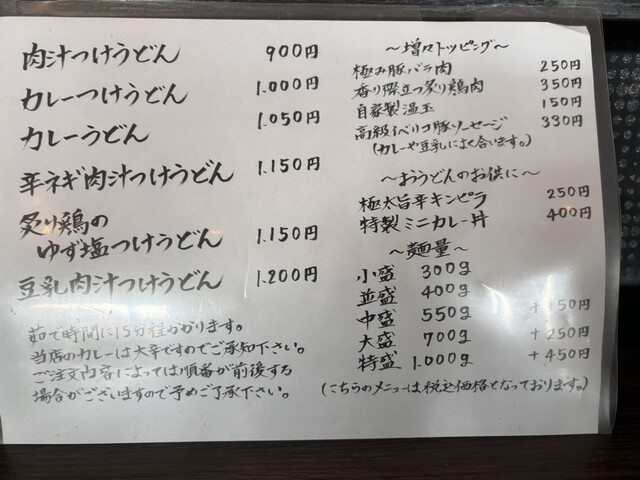 肉汁つけうどん 900円
カレーつけうどん 1.000円
カレーうどん 1.050円
辛ネギ肉汁つけうどん 1.150円
炙り鶏の
ゆず塩つけうどん 1.150円
豆乳肉汁つけうどん 1.200円
茹で時間に15分程かかります。
当店のカレーは大辛ですのでご承知下さい。
ご注文内容によっては順番が前後する
場合がございますので予めご了承下さい。
〜増々トッピング〜
極み豚バラ肉 250円
香り際立つ炙り鶏肉 350円
自家製温玉 150円
高級イベリコ豚ソーセージ 330円
(カレーや豆乳によく合います。)
〜おうどんのお供に〜
極太旨辛キンピラ 250円
特製ミニカレー丼 400円
〜麺量〜
小盛 300g
並盛 400g
中盛 550g +150円
大盛 700g +250円
特盛 1.000g +450円
(こちらのメニューは税込価格となっております。)